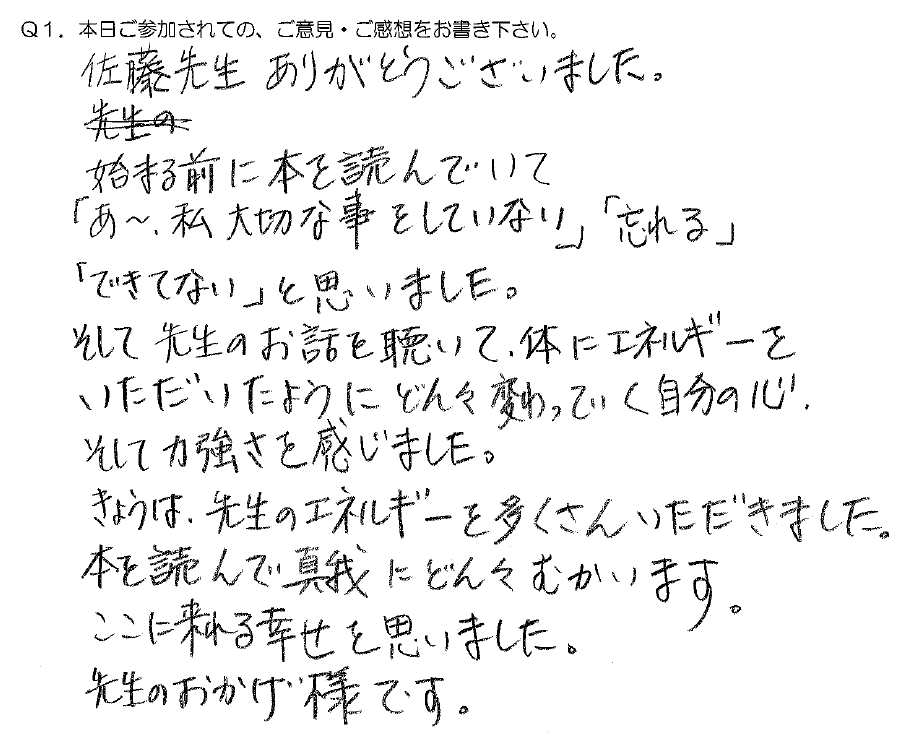 Q1. 本日ご参加されての、ご意見・ご感想をお書き下さい。
佐藤先生 ありがとうございました。
先生の
始まる前に本を読んでいて
「あ~、私 大切な事をしていない」「忘れる」
「できてない」と思いました。
そして先生のお話を聴いて、体にエネルギーを
いただいたようにどんどん々変わっていく自分の心、
そして力強さを感じました。
きょうは、先生のエネルギーを多くさんいただきました。
本を読んで真我にどん々むかいます。
ここに来れる幸せを思いました。
先生のおかげ様です。